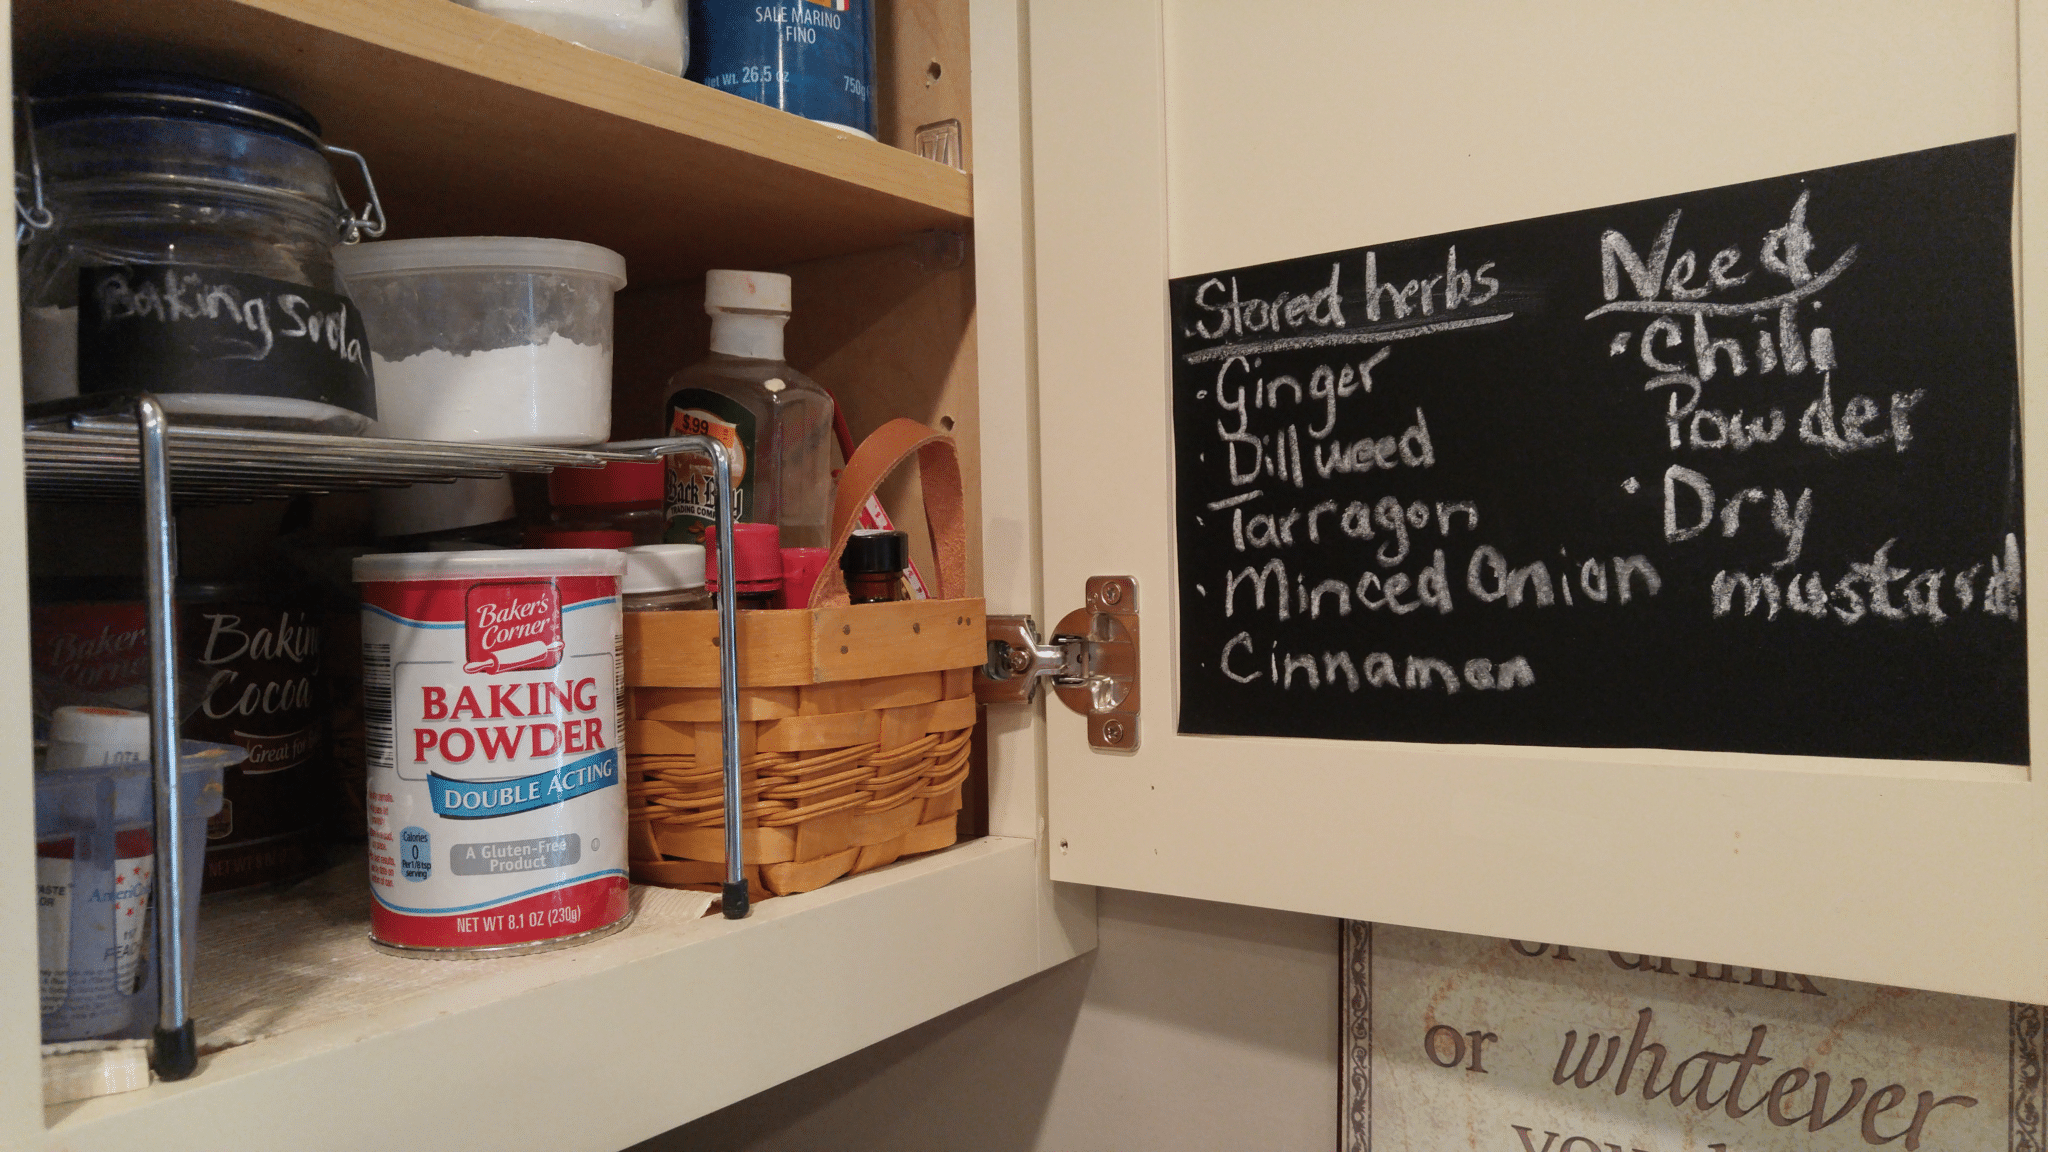 SALE MARINO
FINO
Net Wt. 26.5 oz
750g
Baking Soda
$.99
Back Bay
TRADING COMP
Baker's
Corner
Baking
Cocoa
Great for
LOTA
Baker's
Corner
BAKING
POWDER
DOUBLE ACTING
Calories
0
Per 1/8 tsp
serving
A Gluten-Free
Product
NET WT 8.1 OZ (230g)
Stored herbs
· Ginger
· Dill weed
· Tarragon
· Minced Onion
· Cinnamon
Need
· Chili
Powder
· Dry
mustard
or drink
or whatever